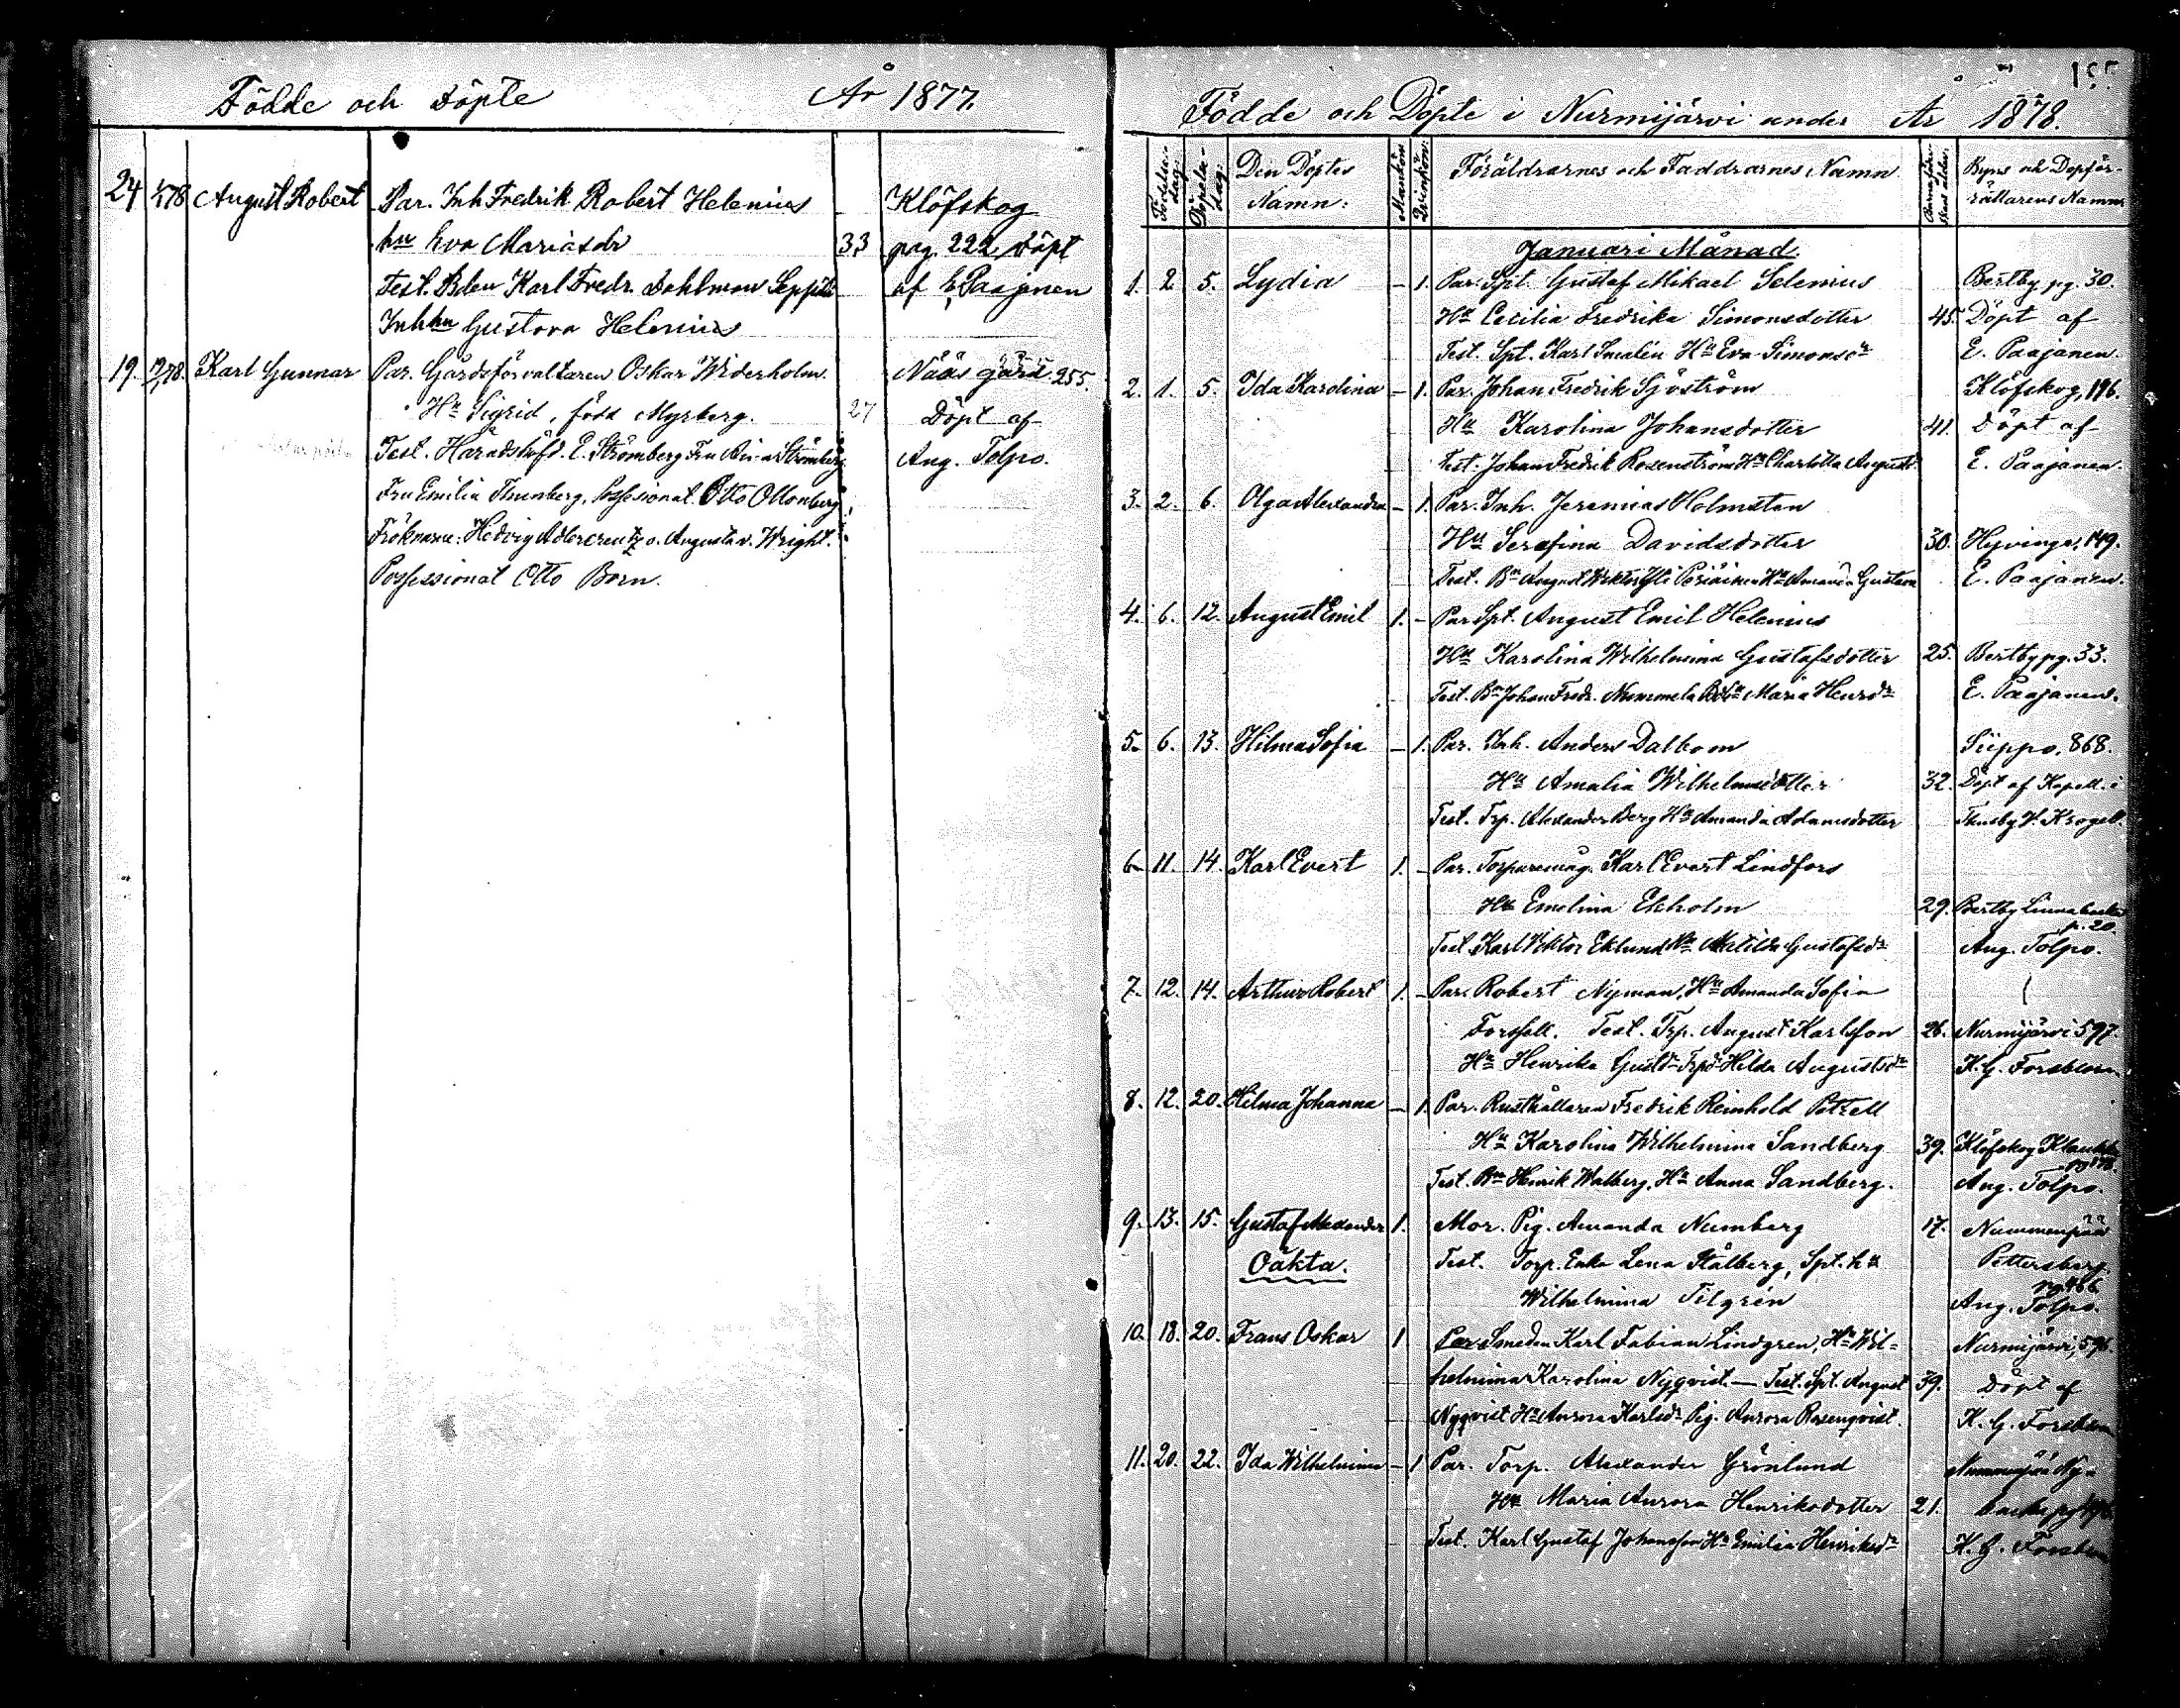 Födde och Döpte År 1877.
24 August Robert Par. Inh Fredrik Robert Helenius Klöfskog
hu Eva Mariasdr 33 pag. 222 Döpt
Test. Karl Fredr. Dahlman af E. Paajanen
Inh hu Gustava Helenius
19. Karl Gunnar Par. Gårdsförvaltaren Oskar Widerholm Nääs gård 255.
Hu Sigrid, född Myrberg. 27 Döpt af
Test. Häradshöfd. E. Strömberg Fru Strömberg Aug. Tolpo.
Fru Emilia Thunberg, Possessionat Otto Ollonberg,
Fröknarna: Hedvig Adlercreutz o. Augusta v. Wright.
Possessionat Otto Born.
Födde och Döpte i Nurmijärvi under År 1878.
Födelsedag: Döpelsedag: Den Döptes Namn: Mankön Qvinkön: Föräldrarnes och Faddrarnes Namn Byns och Dopförrättarens Namn
Januari Månad.
1. 2. 5. Lydia – 1. Par. Spt. Gustaf Mikael Selenius Bertby pg. 30.
Hu Cecilia Fredrika Simonsdotter 45. Döpt af
Test. Spt. Karl Smalén Hu Eva Simonsdr E. Paajanen.
2. 1. 5. Ida Karolina – 1. Par. Johan Fredrik Sjöström Klöfskog, 196.
Hu Karolina Johansdotter 41. Döpt af
Test. Johan Fredrik Rosenström Hu Charlotta E. Paajanen.
3. 2. 6. Olga Alexandra – 1. Par. Inh. Jeremias Holmsten
Hu Serafina Davidsdotter 30. Hyvinge, 149.
Test. Bn August Hu Amanda Gustava E. Paajanen.
4. 6. 12. August Emil 1. – Par Spt. August Emil Helenius
Hu Karolina Wilhelmina Gustafsdotter 25. Bertby pg. 33.
Test. Bn Johan Fredr. Nummela Maria Henrdr E. Paajanen.
5. 6. 13. Hilma Sofia – 1. Par. Inh. Anders Dalbom Siippo, 868.
Hu Amalia Wilhelmsdotter 32. Döpt af Kapell. i
Test. Trp. Alexander Berg Hu Amanda Adamsdotter Thusby Krogell.
6. 11. 14. Karl Evert 1. – Par. Torparemåg Karl Evert Lindfors
Hu Emelina Ekholm 29. Bertby Linnabacka
p. 20.
Test. Karl Viktor Eklund Hu Matilda Gustafsdr Aug. Tolpo.
7. 12. 14. Arthur Robert 1. – Par. Robert Nyman, Hu Amanda Sofia
Forsell. Test. Trp. August Karlsson 26. Nurmijärvi 597.
Hu Henrika Trpd Hilda Augustsdr K. G. Forsblom
8. 12. 20. Hilma Johanna – 1 Par. Rusthållaren Fredrik Reinhold Patzell
Hu Karolina Wilhelmina Sandberg 39. Klöfskog
Test. Bn Henrik Walberg, Hu Anna Sandberg. Aug. Tolpo.
9. 13. 15. Gustaf Alexander 1. Mor. Pig. Amanda Numberg 17. Nummenpää
Oäkta. Test. Torp. Enka Lena Stålberg, Spt. hu Pettersberg
pg 466
Wilhelmina Tilgrén Aug. Tolpo.
10. 18. 20. Frans Oskar 1 Par Smeden Karl Fabian Lindgren, Hu Wil=
helmina Karolina Nyqvist. — Test. Spt. August 39. Döpt af
Nyqvist Hu Aurora Karlsdr Pig. Aurora Rosenqvist. K. G. Forsblom
11. 20. 22. Ida Wilhelmina – 1 Par. Torp. Alexander Grönlund Nummenpää Ny=
Hu Maria Aurora Henriksdotter 21. backa
Test. Karl Gustaf Johansson Hu Emilia Henriksdr K. G. Forsblom